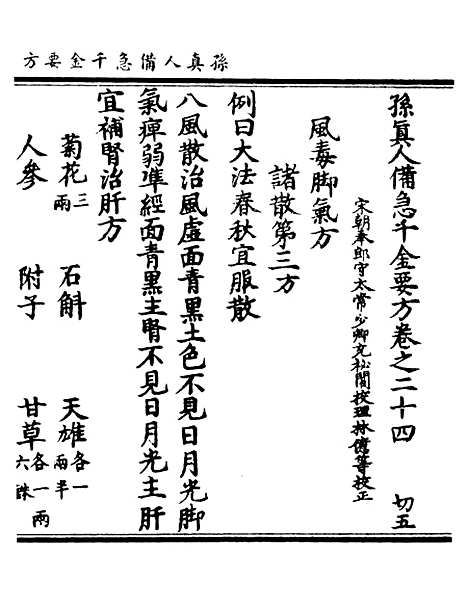 孫真人備急千金要方
孫眞人備急千金要方卷之二十四 切五
宋朝奉郎守太常少卿充秘閣校理林億等校正
風毒脚氣方
諸散第三方
例曰大法春秋宜服散
八風散治風虛面青黑土色不見日月光脚
氣痺弱準經面青黑主腎不見日月光主肝
宜補腎治肝方
菊花三兩 石斛 天雄各一兩半
人參 附子 甘草各一兩六銖